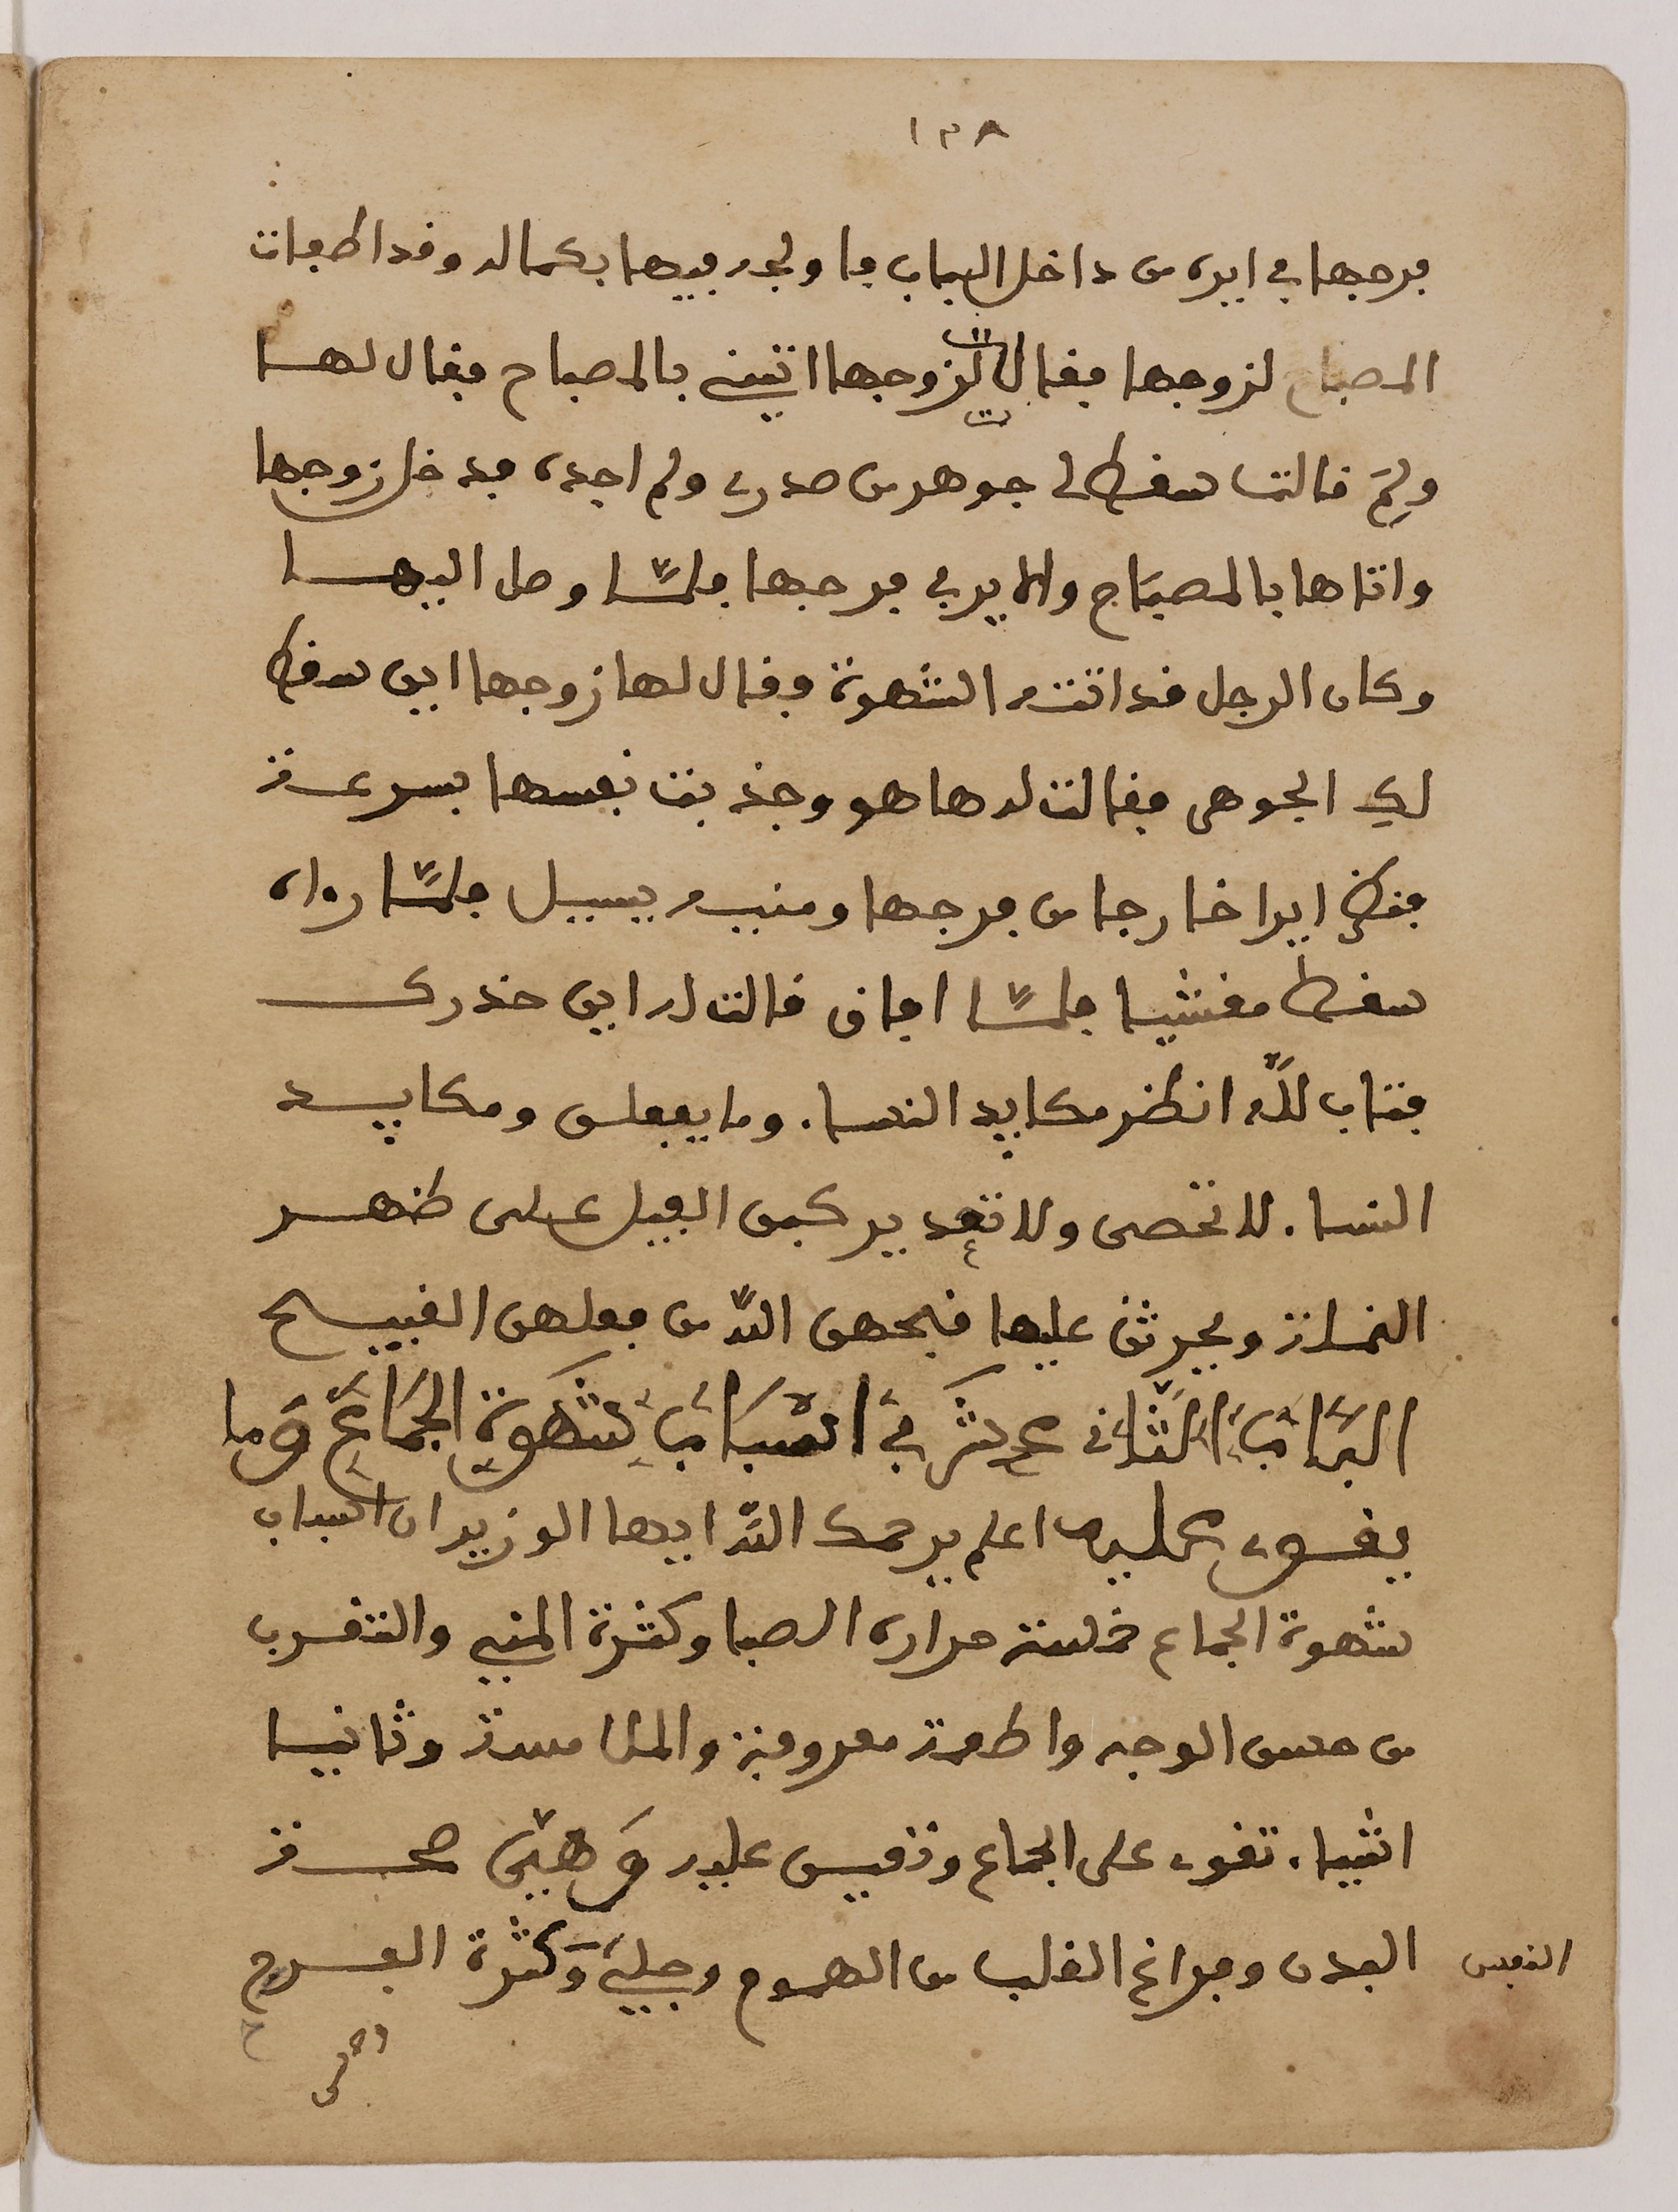 ١٣٨
فرجها في ايره من داخل الباب فاولجه فيها بكماله وقد اطفات
المصباح لزوجها فقالت لزوجها ائتيني بالمصباح فقال لها
ولِمَ قالت سقط لي جوهر من صدري ولم اجده فدخل زوجها
واتاها بالمصباح والاير في فرجها فلمّا وصل اليها
وكان الرجل قد اتته الشهوة فقال لها زوجها اين سقط
لك الجوهر فقالت له ها هو وجذبت نفسها بسرعة
فنظر ايرا خارجا من فرجها ومنيه يسيل فلمّا رءاه
سقط مغشيا فلمّا افاق قالت له اين حذرك
فتاب للّه انظر مكايد النساء وما يفعلن ومكايد
النساء لا تحصى ولا تعد يركبن الفيل على ظهر
النملة ويحرثن عليها قبحهن اللّه من فعلهن القبيح
البَابُ الثَّاني عشر فِي اسْبَابِ شهوةِ الجمَاعِ وَما
يقوى عليه اعلم يرحمك اللّه ايها الوزير ان اسباب
شهوة الجماع ستة حرارة الصبا وكثرة المني والتقرب
من حسن الوجه واطعمة معروفة والملامسة وثمانية
اشياء تقوى على الجماع وتعين عليه وَهِيَ صحة
البدن وفراغ القلب من الهموم وجلي وَكثرة الفرح
النفس